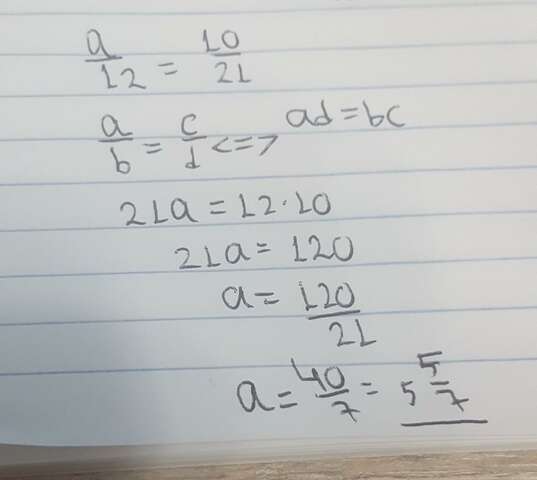 a/12 = 10/21
a/b = c/d <=> ad = bc
21a = 12·10
21a = 120
a = 120/21
a = 40/7 = 5 5/7